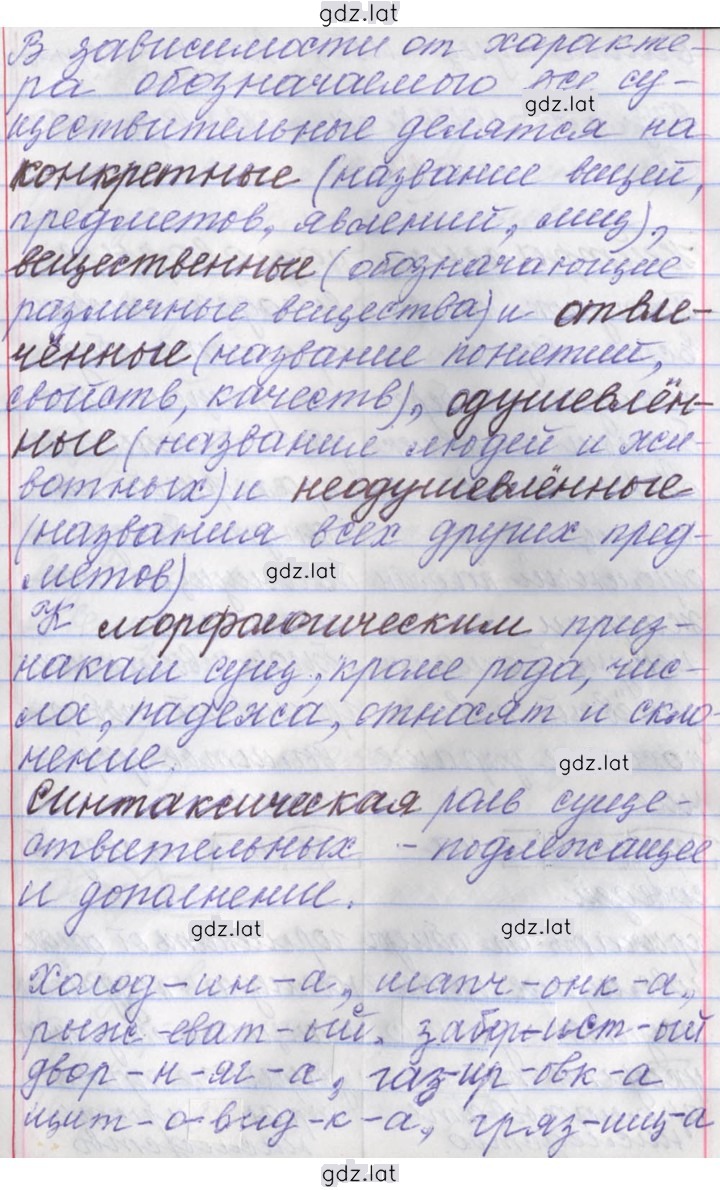 gdz.lat
В зависимости от характе-
ра обозначаемого все су-
gdz.lat
ществительные делятся на
конкретные (название вещей,
предметов, явлений, лиц),
вещественные (обозначающие
различные вещества) и отвле-
чённые (название понятий,
свойств, качеств), одушевлён-
ные (название людей и жи-
вотных) и неодушевлённые
(названия всех других пред-
метов)
gdz.lat
К морфологическим приз-
накам сущ., кроме рода, чис-
ла, падежа, относят и скло-
нение.
gdz.lat
Синтаксическая роль суще-
ствительных - подлежащее
и дополнение.
gdz.lat
gdz.lat
Холод-ин-а, шапч-онк-а,
рыж-еват-ый, забор-ист-ый
двор-н-яг-а, газ-ир-овк-а
щит-о-вид-к-а, гряз-ищ-а
gdz.lat